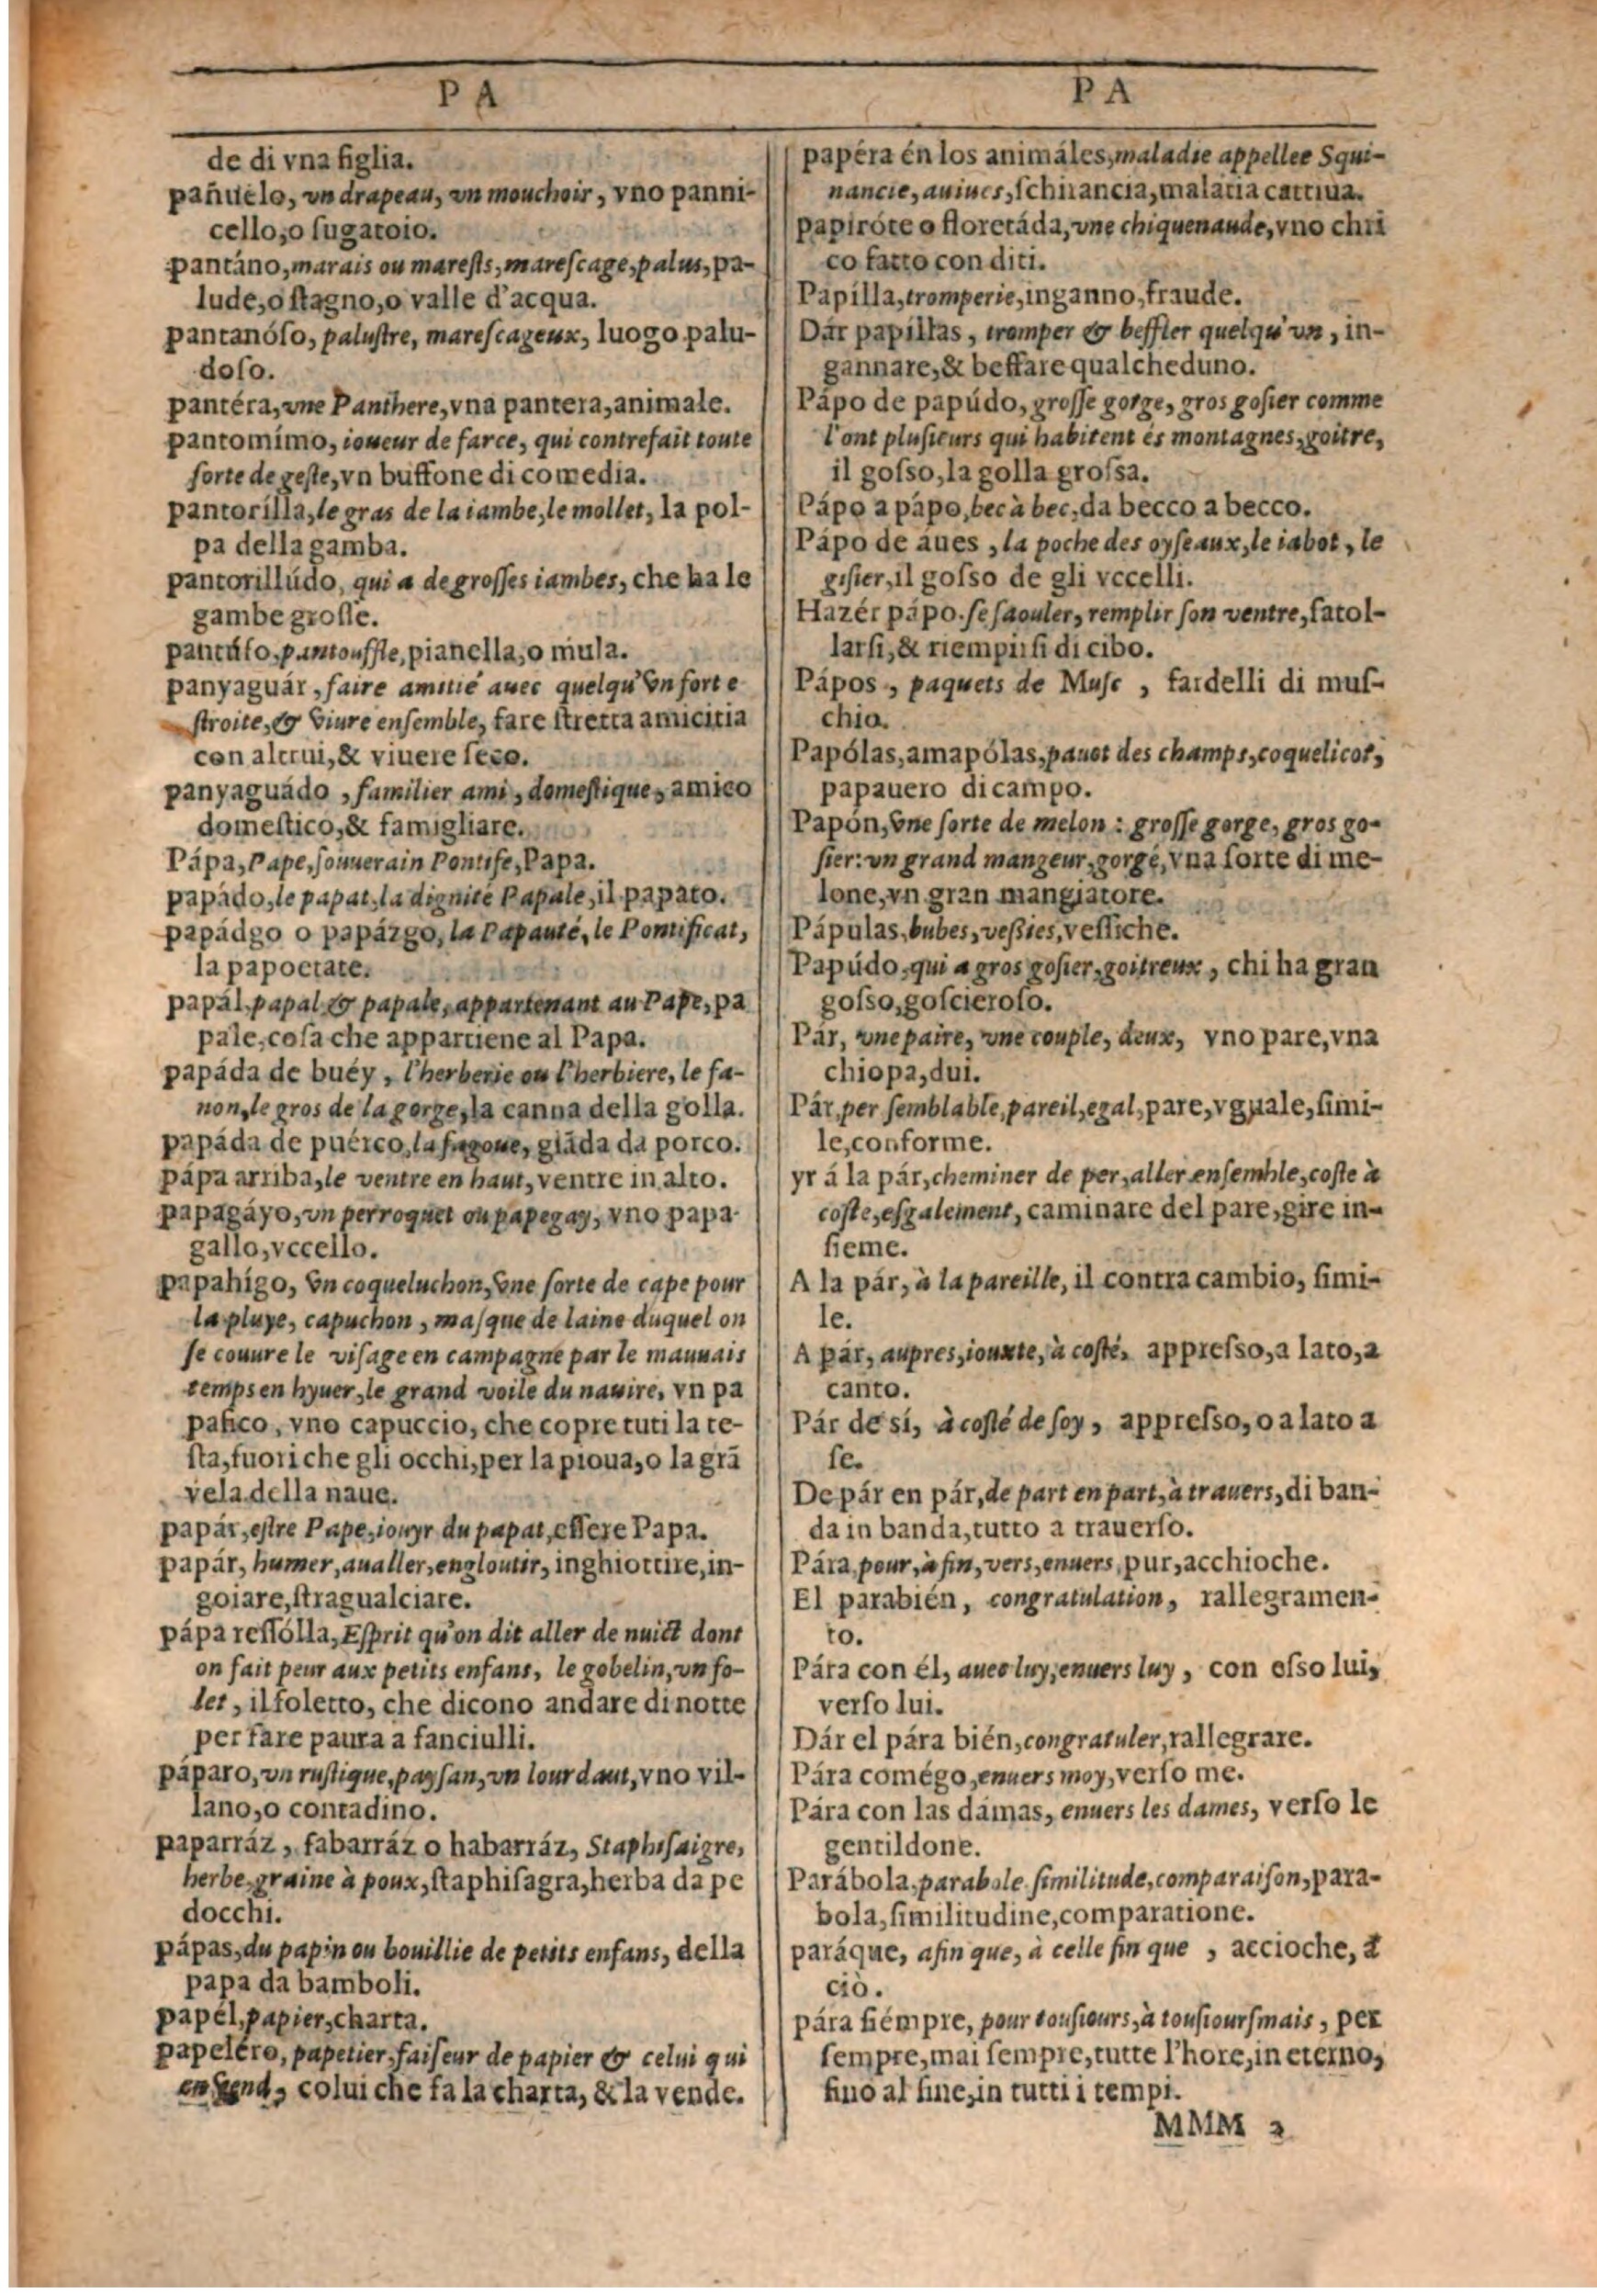 PA
de di vna figlia.
pañuélo, vn drapeau, vn mouchoir, vno panni-
cello, o ſugatoio.
pantáno, marais ou mareſts, mareſcage, palus, pa-
lude, o ſtagno, o valle d'acqua.
pantanóſo, paluſtre, mareſcageux, luogo palu-
doſo.
pantéra, vne Panthere, vna pantera, animale.
pantomímo, ioueur de farce, qui contrefait toute
ſorte de geſte, vn buffone di comedia.
pantorílla, le gras de la iambe, le mollet, la pol-
pa della gamba.
pantorillúdo, qui a de groſſes iambes, che ha le
gambe groſſe.
pantúfo, pantouffle, pianella, o mula.
panyaguár, faire amitié auec quelqu'vn fort e
ſtroite, & viure enſemble, fare ſtretta amicitia
con altrui, & viuere ſeco.
panyaguádo, familier ami, domeſtique, amico
domeſtico, & famigliare.
Pápa, Pape, ſouuerain Pontife, Papa.
papádo, le papat, la dignité Papale, il papato.
papádgo o papázgo, la Papauté, le Pontificat,
la papoetate.
papál, papal & papale, appartenant au Pape, pa
pale, coſa che appartiene al Papa.
papáda de buéy, l'herberie ou l'herbiere, le fa-
non, le gros de la gorge, la canna della golla.
papáda de puérco, la fagoue, giãda da porco.
pápa arriba, le ventre en haut, ventre in alto.
papagáyo, vn perroquet ou papegay, vno papa-
gallo, vccello.
papahígo, vn coqueluchon, vne ſorte de cape pour
la pluye, capuchon, maſque de laine duquel on
ſe couure le viſage en campagne par le mauuais
temps en hyuer, le grand voile du nauire, vn pa
pafico, vno capuccio, che copre tuti la te-
ſta, fuori che gli occhi, per la pioua, o la grã
vela della naue.
papár, eſtre Pape, iouyr du papat, eſſere Papa.
papár, humer, aualler, engloutir, inghiottire, in-
goiare, ſtragualciare.
pápa reſſólla, Eſprit qu'on dit aller de nuict dont
on fait peur aux petits enfans, le gobelin, vn fo-
let, il foletto, che dicono andare di notte
per fare paura a fanciulli.
páparo, vn ruſtique, payſan, vn lourdaut, vno vil-
lano, o contadino.
paparráz, fabarráz o habarráz, Staphiſaigre,
herbe, graine à poux, ſtaphiſagra, herba da pe
docchi.
pápas, du papin ou bouillie de petits enfans, della
papa da bamboli.
papél, papier, charta.
papeléro, papetier, faiſeur de papier & celui qui
en vend, colui che fa la charta, & la vende.
PA
papéra én los animáles, maladie appellee Squi-
nancie, auiues, ſchinancia, malatia cattiua.
papiróte o floretáda, vne chiquenaude, vno chri
co fatto con diti.
Papílla, tromperie, inganno, fraude.
Dár papíllas, tromper & beffler quelqu'vn, in-
gannare, & beffare qualcheduno.
Pápo de papúdo, groſſe gorge, gros goſier comme
l'ont pluſieurs qui habitent és montagnes, goitre,
il goſſo, la golla groſſa.
Pápo a pápo, bec à bec, da becco a becco.
Pápo de áues, la poche des oyſeaux, le iabot, le
giſier, il goſſo de gli vccelli.
Hazér pápo. ſe ſaouler, remplir ſon ventre, ſatol-
larſi, & riempirſi di cibo.
Pápos, paquets de Muſc, fardelli di muſ-
chio.
Papólas, amapólas, pauot des champs, coquelicot,
papauero di campo.
Papón, vne ſorte de melon: groſſe gorge, gros go-
ſier: vn grand mangeur, gorgé, vna ſorte di me-
lone, vn gran mangiatore.
Pápulas, bubes, veſſies, veſſiche.
Papúdo, qui a gros goſier, goitreux, chi ha gran
goſſo, goſcieroſo.
Pár, vne paire, vne couple, deux, vno pare, vna
chiopa, dui.
Pár, per ſemblable, pareil, egal, pare, vguale, ſimi-
le, conforme.
yr á la pár, cheminer de per, aller enſemble, coſte à
coſte, eſgalement, caminare del pare, gire in-
ſieme.
A la pár, à la pareille, il contra cambio, ſimi-
le.
A pár, aupres, iouxte, à coſté, appreſſo, a lato, a
canto.
Pár de sí, à coſté de ſoy, appreſſo, o a lato a
ſe.
De pár en pár, de part en part, à trauers, di ban-
da in banda, tutto a trauerſo.
Pára, pour, à fin, vers, enuers, pur, acchioche.
El parabién, congratulation, rallegramen-
to.
Pára con él, auec luy, enuers luy, con eſſo lui,
verſo lui.
Dár el pára bién, congratuler, rallegrare.
Pára comégo, enuers moy, verſo me.
Pára con las dámas, enuers les dames, verſo le
gentildone.
Parábola, parabole ſimilitude, comparaiſon, para-
bola, ſimilitudine, comparatione.
paráque, afin que, à celle fin que, accioche, à
ciò.
pára ſiémpre, pour touſiours, à touſioursmais, per
ſempre, mai ſempre, tutte l'hore, in eterno,
fino al fine, in tutti i tempi.
MMM 2